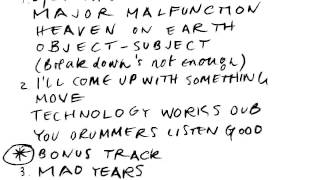 MAJOR MALFUNCTION
HEAVEN ON EARTH
OBJECT-SUBJECT
(Breakdown's not enough)
2. I'LL COME UP WITH SOMETHING
MOVE
TECHNOLOGY WORKS DUB
YOU DRUMMERS LISTEN GOOD
* BONUS TRACK
3. MAD YEARS